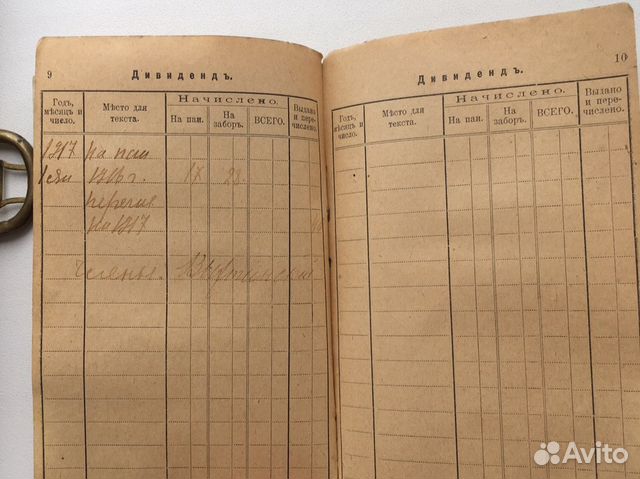 9
Дивидендъ.
Годъ, мѣсяцъ и число.
Мѣсто для текста.
Начислено.
На паи.
На заборъ.
ВСЕГО.
Выдано и пере- числено.
1917 На паи
1916 г. 28
на 1917
Члены
10
Дивидендъ.
Годъ, мѣсяцъ и число.
Мѣсто для текста.
Начислено.
На паи.
На заборъ.
ВСЕГО.
Выдано и пере- числено.
Avito